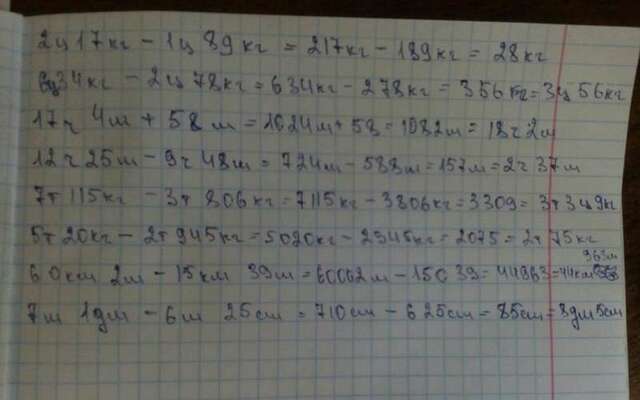 2ц 17кг - 1ц 89кг = 217кг - 189кг = 28кг
6ц34кг - 2ц 78кг = 634кг - 278кг = 356кг = 3ц 56кг
17ч 4м + 58м = 1024м + 58 = 1082м = 18ч 2м
12ч 25м - 9ч 48м = 724м - 588м = 157м = 2ч 37м
7т 115кг - 3т 806кг = 7115кг - 3806кг = 3309 = 3т 349кг
5т 20кг - 2т 945кг = 5020кг - 2945кг = 2075 = 2т 75кг
60км 2м - 15км 39м = 60002м - 15039 = 44963 = 44км 963м
7м 1дм - 6м 25см = 710см - 625см = 85см = 8дм 5см